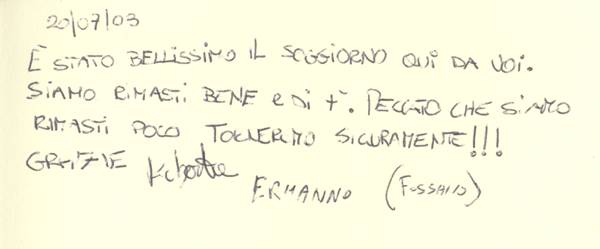 20/07/03
È STATO BELLISSIMO IL SOGGIORNO QUI DA VOI.
SIAMO RIMASTI BENE E DI +. PECCATO CHE SIAMO
RIMASTI POCO TORNEREMO SICURAMENTE!!!
GRAZIE
ERMANNO (FOSSANO)